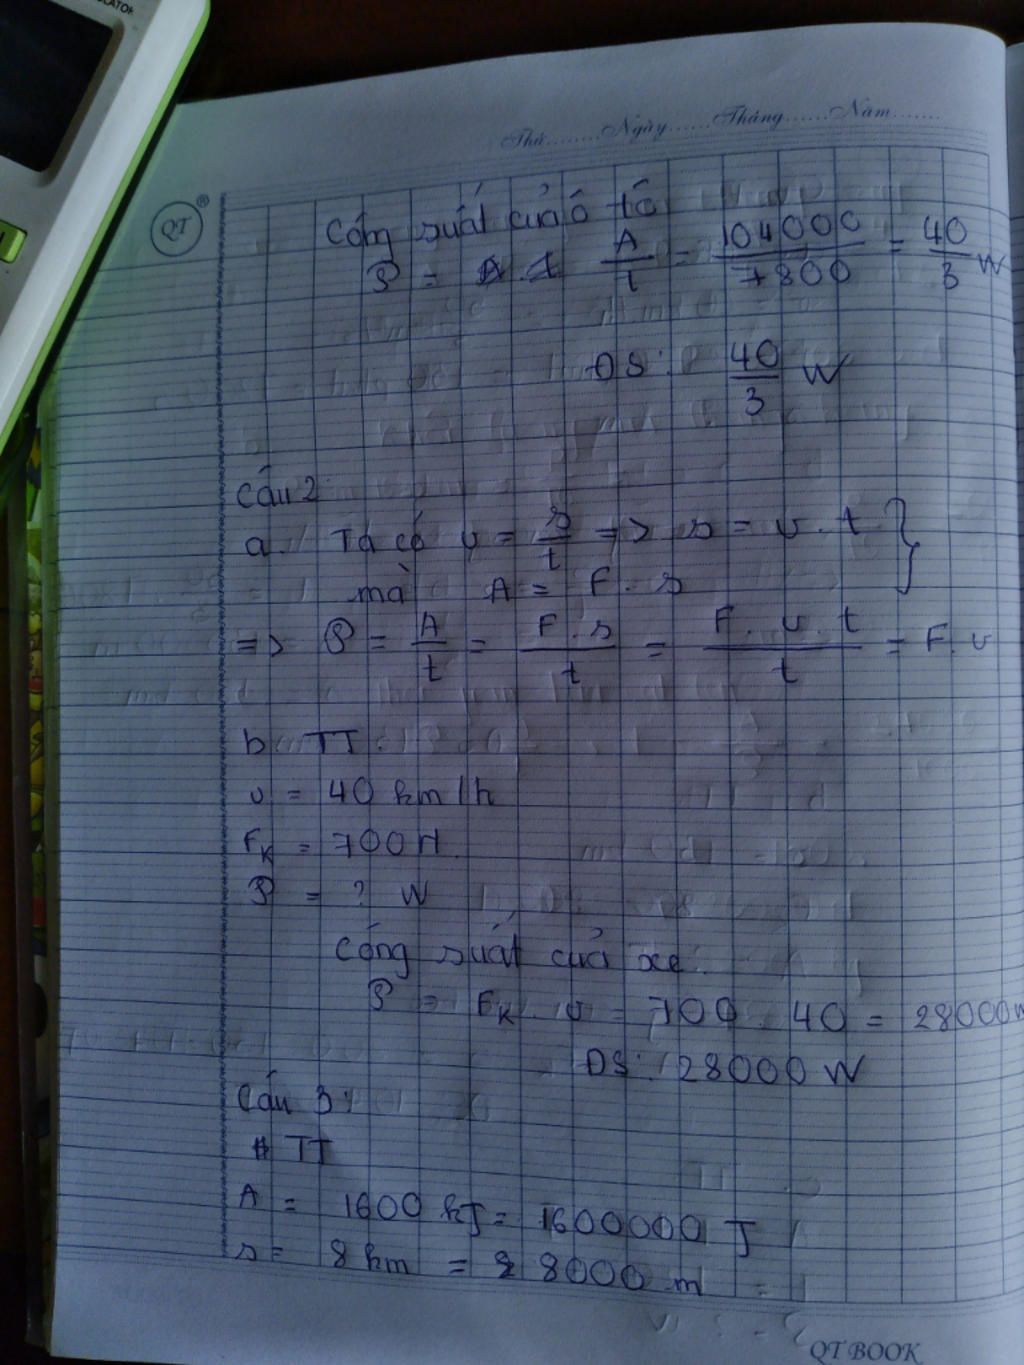 Thứ........Ngày......Tháng......Năm.......
QT
®
Công suất của ô tô
P = A/t = 104000/7800 = 40/3 W
ĐS: 40/3 W
Câu 2:
a. Ta có v = s/t => s = v.t }
mà A = F.s
=> P = A/t = F.s/t = F.v.t/t = F.v
b TT:
v = 40 km/h
FK = 700 N.
P = ? W
Công suất của xe:
P = FK.v = 700.40 = 28000W
ĐS: 28000 W
Câu 3:
TT
A = 1600 kJ = 1600000 J
s = 8 km = 8000 m
QT BOOK